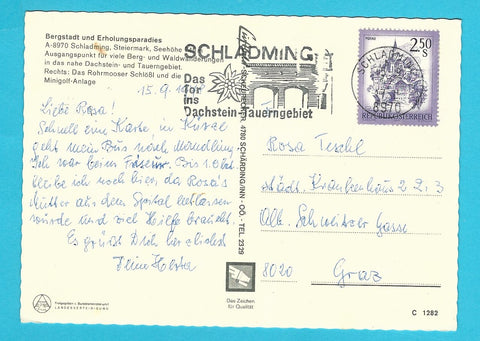 Bergstadt und Erholungsparadies
A-8970 Schladming, Steiermark, Seehöhe
Ausgangspunkt für viele Berg- und Waldwanderungen
in das nahe Dachstein- und Tauerngebiet.
Rechts: Das Rohrmooser Schlößl und die
Minigolf-Anlage
15.9.
Liebe Rosa!
Schnell eine Karte, in Kürze
geht mein Bus nach Mandling
Ich war beim Friseur. Bis 1. Okt
bleibe ich noch hier, da Rosa's
Mutter aus dem Spital entlassen
wurde und viel Hilfe braucht.
Es grüßt Dich herzlichst
Deine Herta
SCHLADMING
Das
Tor
ins
Dachstein-Tauerngebiet
SCHLADMING
8970
2.50
S
REPUBLIK ÖSTERREICH
4780 SCHÄRDING/INN - OÖ. - TEL 2329
Rosa Teschl
Städt. Krankenhaus 2 2. 3
Alb. Schweitzer Gasse
8020 Graz
Das Zeichen
für Qualität
LANDESVERTEIDIGUNG
C 1282